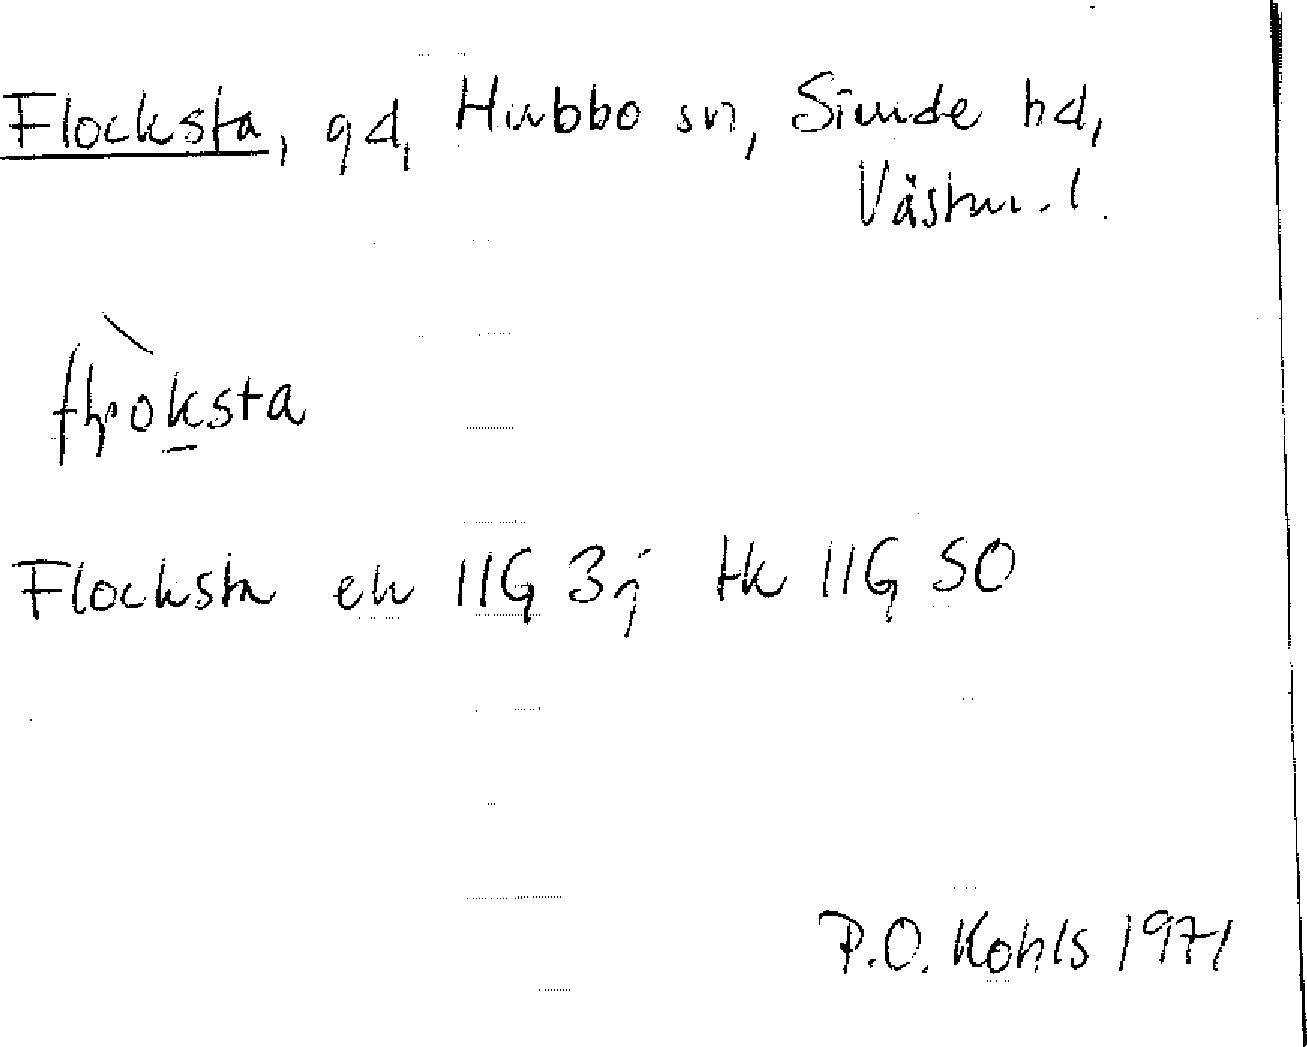 Flocksta, gd, Hubbo sn, Siende hd,
Västm. l.
Flocksta ek 11G 3j tk 11G SO
P.O. Kohls 1971